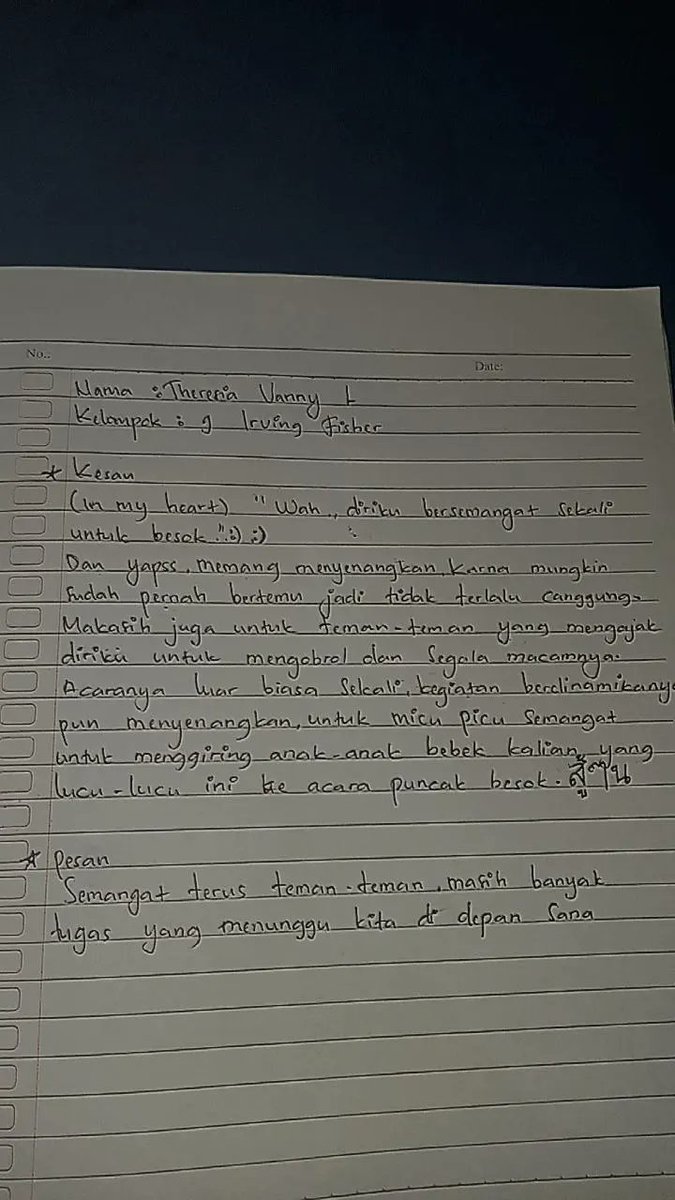 No.:
Date:
Nama : Theresia Vanny L
Kelompok : 9 Irving Fisher
* Kesan
(in my heart) "Wah.. diriku bersemangat sekali
untuk besok".:) ;)
Dan yapss, memang menyenangkan, karna mungkin
sudah pernah bertemu jadi tidak terlalu canggung.
Makasih juga untuk teman-teman yang mengajak
diriku untuk mengobrol dan segala macamnya.
Acaranya luar biasa sekali, kegiatan berdinamikanya
pun menyenangkan, untuk micu picu semangat
untuk menggiring anak-anak bebek kalian yang
lucu-lucu ini ke acara puncak besok.
* Pesan
Semangat terus teman-teman, masih banyak
tugas yang menunggu kita di depan sana